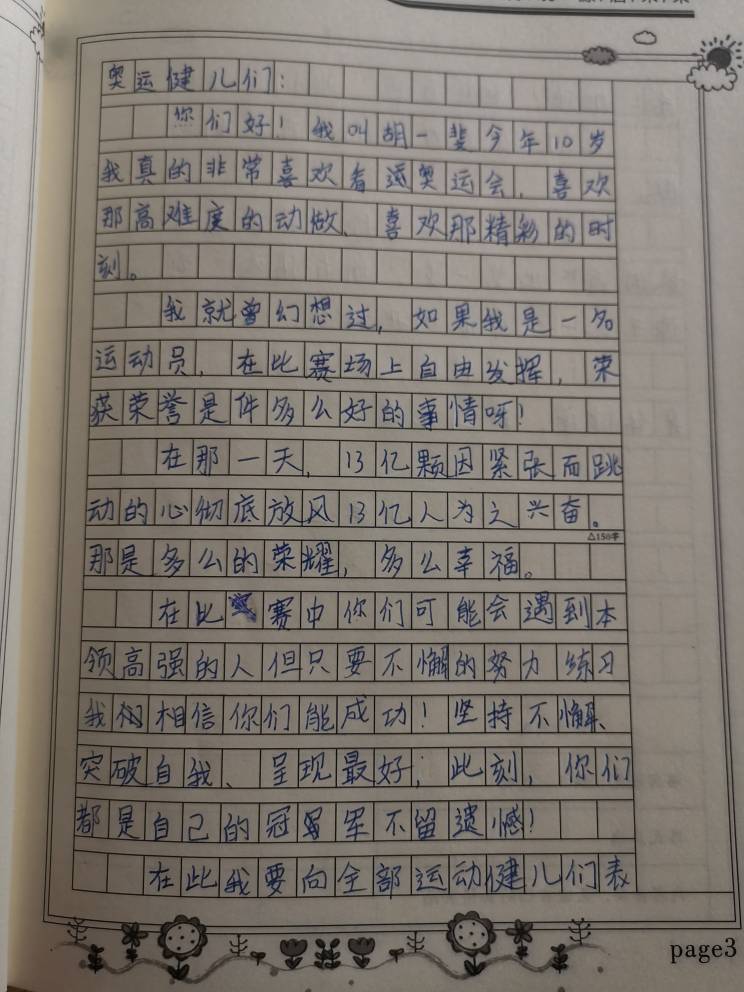 奥运健儿们：
你们好！我叫胡一斐今年10岁
我真的非常喜欢看奥运会，喜欢
那高难度的动做、喜欢那精彩的时
刻。
我就曾幻想过，如果我是一名
运动员，在比赛场上自由发挥，荣
获荣誉是件多么好的事情呀！
在那一天，13亿颗因紧张而跳
动的心彻底放风13亿人为之兴奋。
△150字
那是多么的荣耀，多么幸福。
在比赛中你们可能会遇到本
领高强的人但只要不懈的努力练习
我相信你们能成功！坚持不懈、
突破自我、呈现最好，此刻，你们
都是自己的冠军不留遗憾！
在此我要向全部运动健儿们表
page3